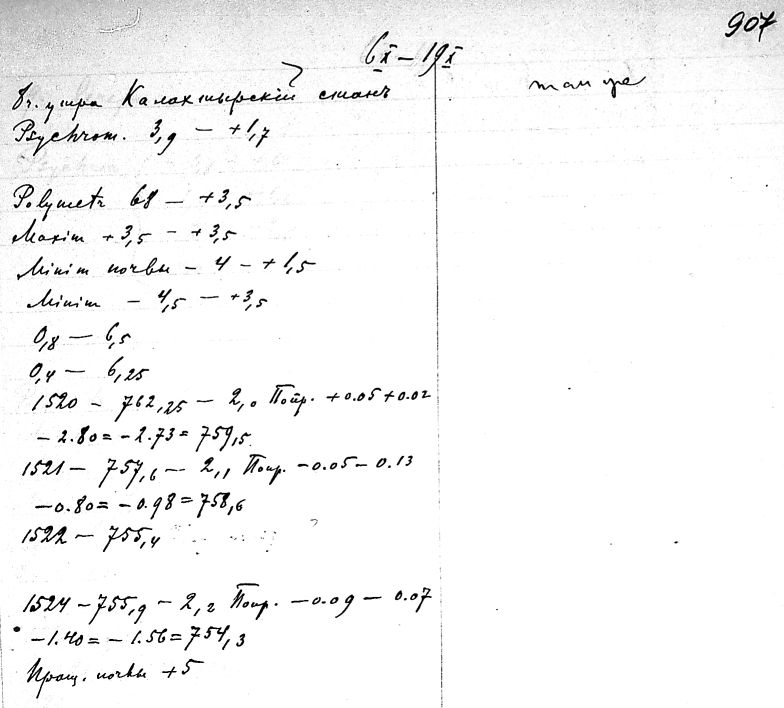 907
6 X – 19 X
8 ч. утра Калахтырскій станъ
там же
Psychrom. 3,9 – +1,7
Polymetr 68 – +3,5
Maxim +3,5 – +3,5
Minim почвы – 4 – +1,5
Minim – 4,5 – +3,5
0,8 – 6,5
0,4 – 6,25
1520 – 762,25 – 2,0 Попр. +0.05+0.02
– 2.80 = – 2.73 = 759,5
1521 – 757,6 – 2,1 Попр. – 0.05 – 0.13
– 0.80 = – 0.98 = 758,6
1522 – 755,4
1524 – 755,9 – 2,2 Попр. – 0.09 – 0.07
– 1.40 = – 1.56 = 754,3
почвы +5